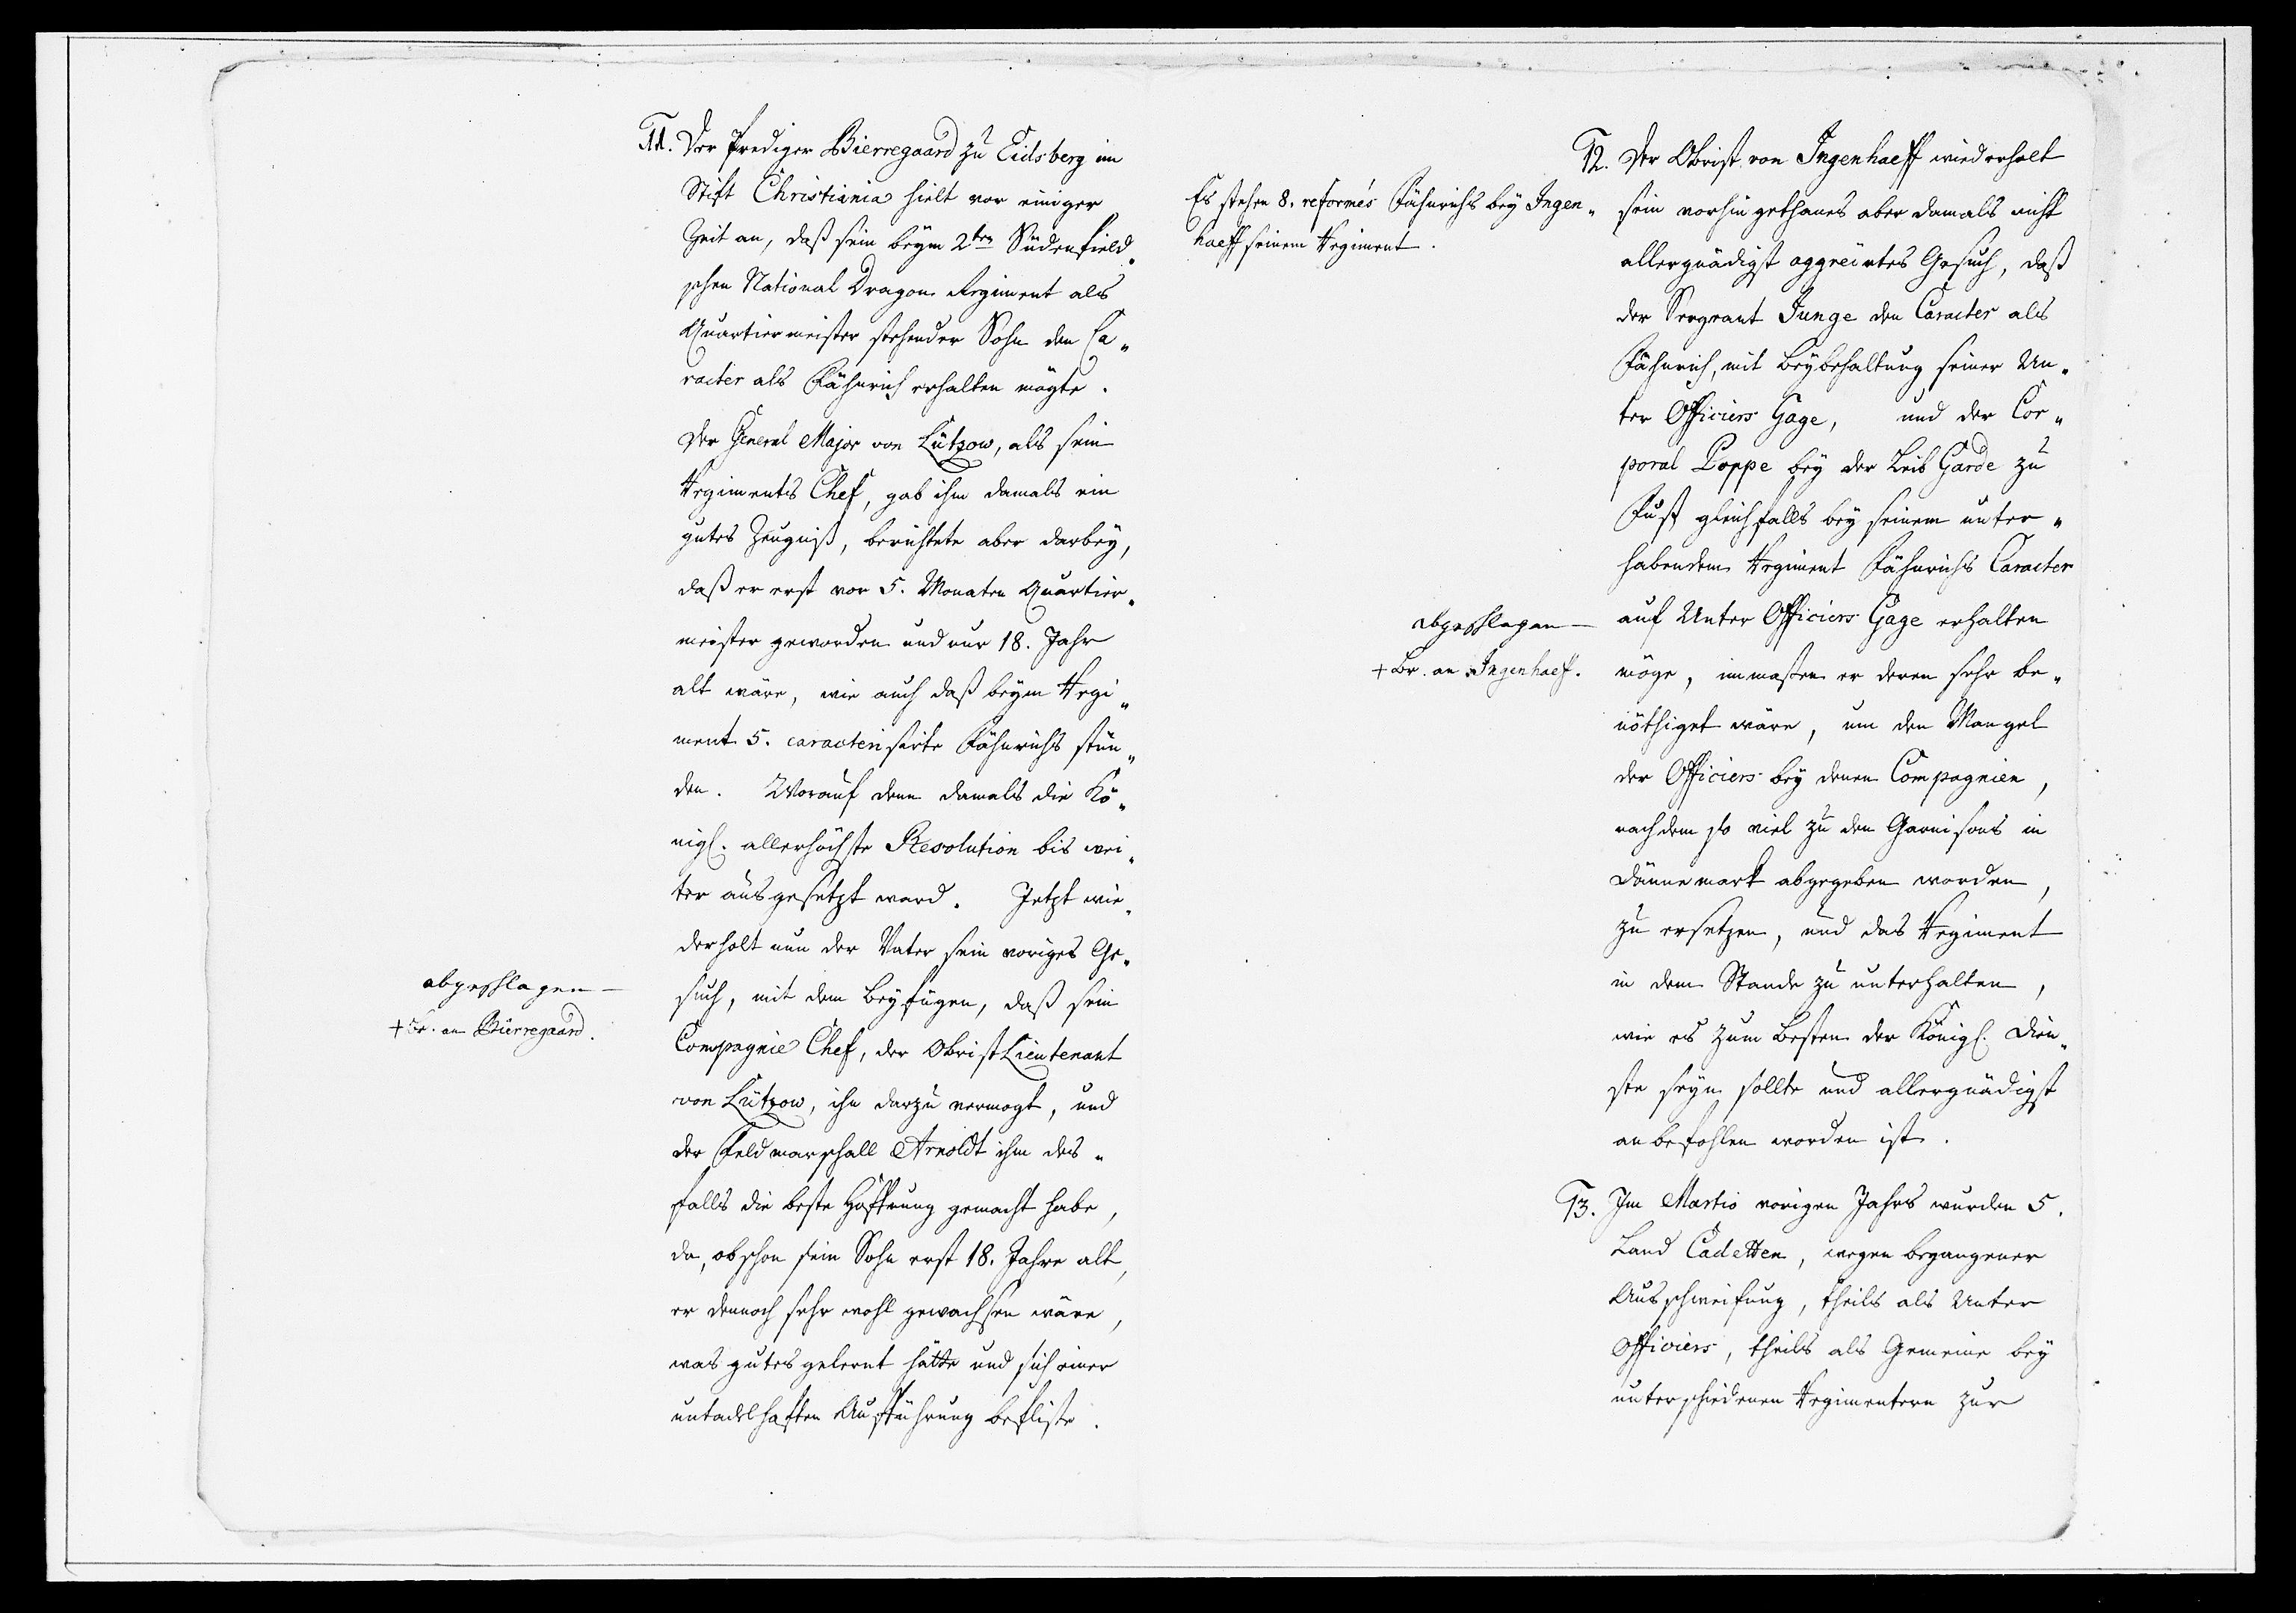 11. Der Prediger Bierregaard zu Eidsberg im
Stift Christiania hielt vor einiger
Zeit an, daß sein beym 2ten Südenfield„
schen National Dragon Regiment als
Quartiermeister stehender Sohn den Ca„
racter als Fähnrich erhalten mögte.
Der General Major von Lützow, als sein
Regiments Chef, gab ihm damals ein
gutes Zeugniß, berichtete aber darbey,
daß er erst vor 5. Monaten Quartier„
meister geworden und nur 18. Jahr
alt wäre, wie auch daß beym Regi„
ment 5. caracterisirte Fähnrichs stün„
den. Worauf denn damals die Kö„
nigl. allerhöchste Resolution bis wei„
ter ausgesetzt ward. Jetzt wie„
derholt nun der Vater sein voriges Ge„
such, mit dem Beyfügen, daß sein
Compagnie Chef, der Obrist Lieutenant
von Lützow, ihn darzu vermogt, und
der Feldmarschall Arnoldt ihm des„
falls die beste Hoffnung gemacht habe,
da, obschon sein Sohn erst 18. Jahre alt,
er dennoch sehr wohl gewachsen wäre,
was gutes gelernt hätte und sich einer
untadelhaften Aufführung befliße.
abgeschlagen —
+ Br. an Bierregaard.
Es stehen 8. reformés Fähnrichs bey Ingen„
haeff seinem Regiment.
12. Der Obrist von Ingenhaeff wiederholt
sein vorhin gethanes aber damals nicht
allergnädigst aggreirtes Gesuch, daß
der Sergeant Junge den Caracter als
Fähnrich, mit Beybehaltung seiner Un„
ter Officiers Gage, und der Cor„
poral Poppe bey der Leib Garde zu
Fuß gleichfalls bey seinem unter„
habendem Regiment Fähnrichs Caracter
auf Unter Officiers Gage erhalten
möge, immaßen er deren sehr be„
nöthiget wäre, um den Mangel
der Officiers bey denen Compagnien,
nachdem so viel zu den Garnisons in
Dännemark abgegeben worden,
zu ersetzen, und das Regiment
in dem Stande zu unterhalten,
wie es zum Besten der Königl. Dien„
ste seyn sollte und allergnädigst
anbefohlen worden ist.
abgeschlagen —
+ Br. an Ingenhaeff.
13. Im Martio vorigen Jahrs wurden 5.
Land Cadetten, wegen begangener
Ausschweifung, theils als Unter
Officiers, theils als Gemeine bey
unterschiedenen Regimentern zur